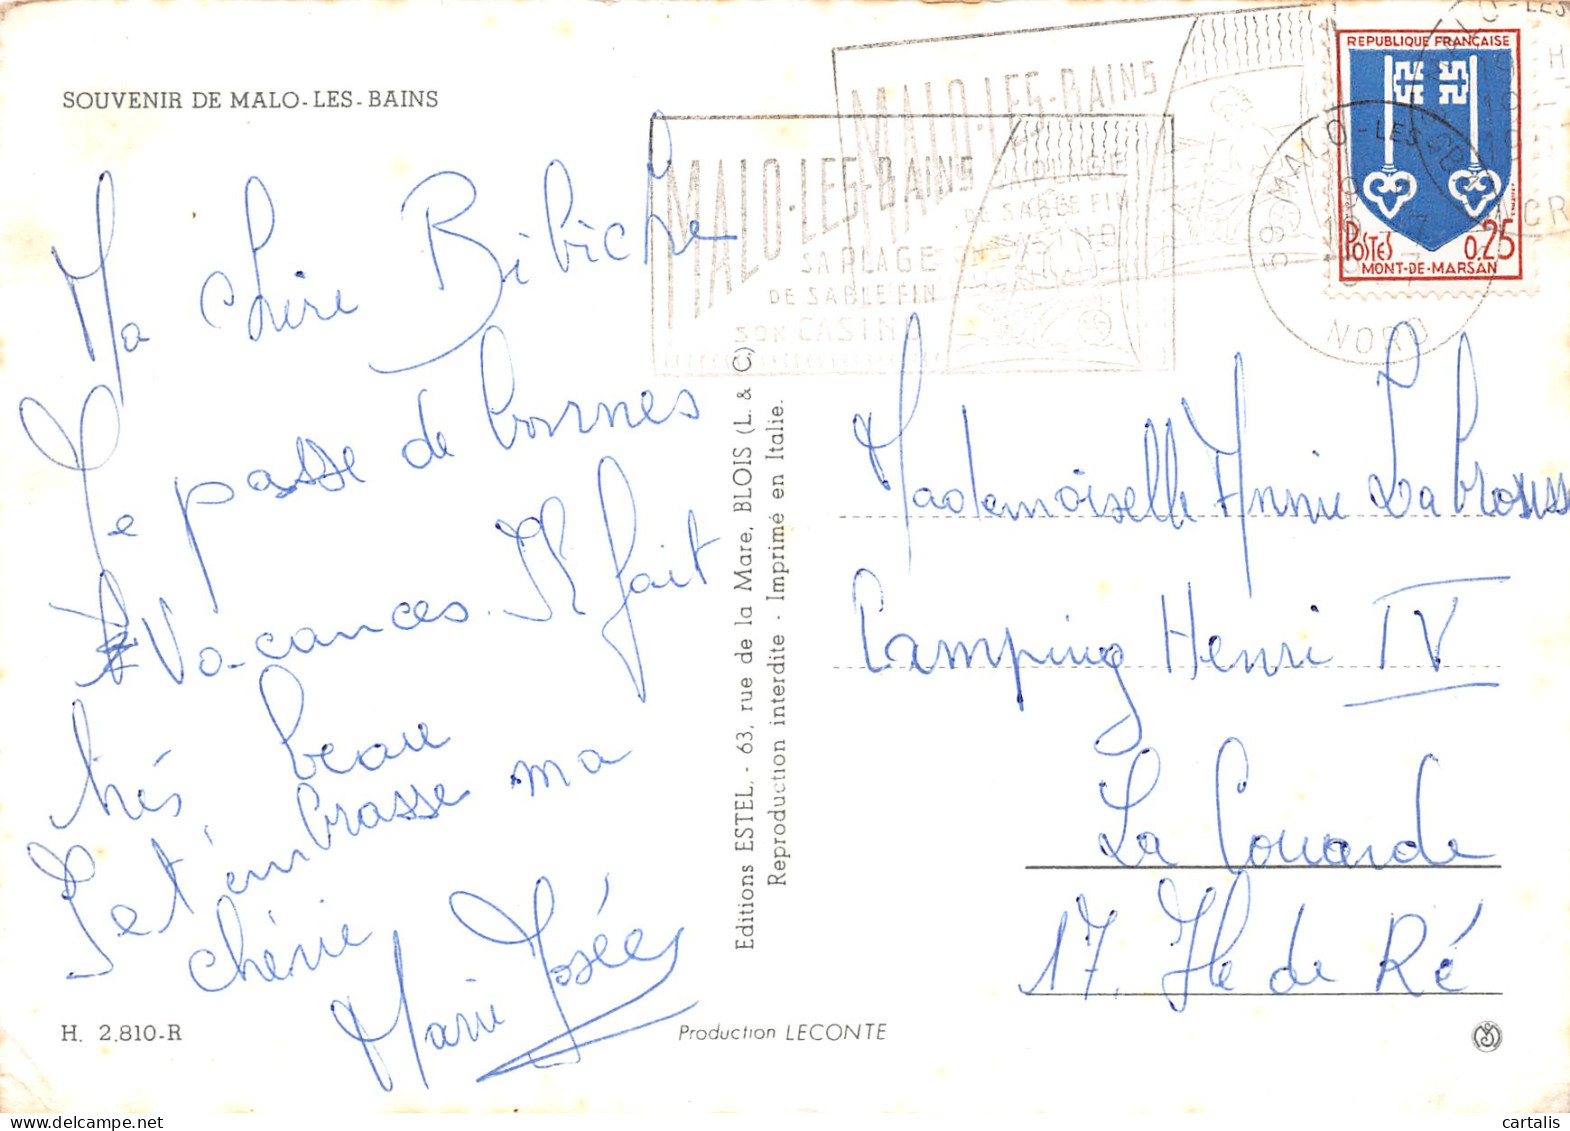 SOUVENIR DE MALO-LES-BAINS
Ma chère Bibiche
Je passe de bonnes
vacances. Il fait
très beau
Je t'embrasse ma
chérie
Marie Josée
H. 2.810-R
Editions ESTEL, - 63, rue de la Mare, BLOIS (L. & C.)
Reproduction interdite - Imprimé en Italie.
Production LECONTE
MALO-LES-BAINS
SA PLAGE
DE SABLE FIN
SON CASINO
MALO-LES-BAINS
SA PLAGE
DE SABLE FIN
CASINO
59 MALO-LES-BAINS
NORD
REPUBLIQUE FRANÇAISE
POSTES 0.25
MONT-DE-MARSAN
Mademoiselle Annie Labrousse
Camping Henri IV
La Couarde
17. Ile de Ré
cartalis